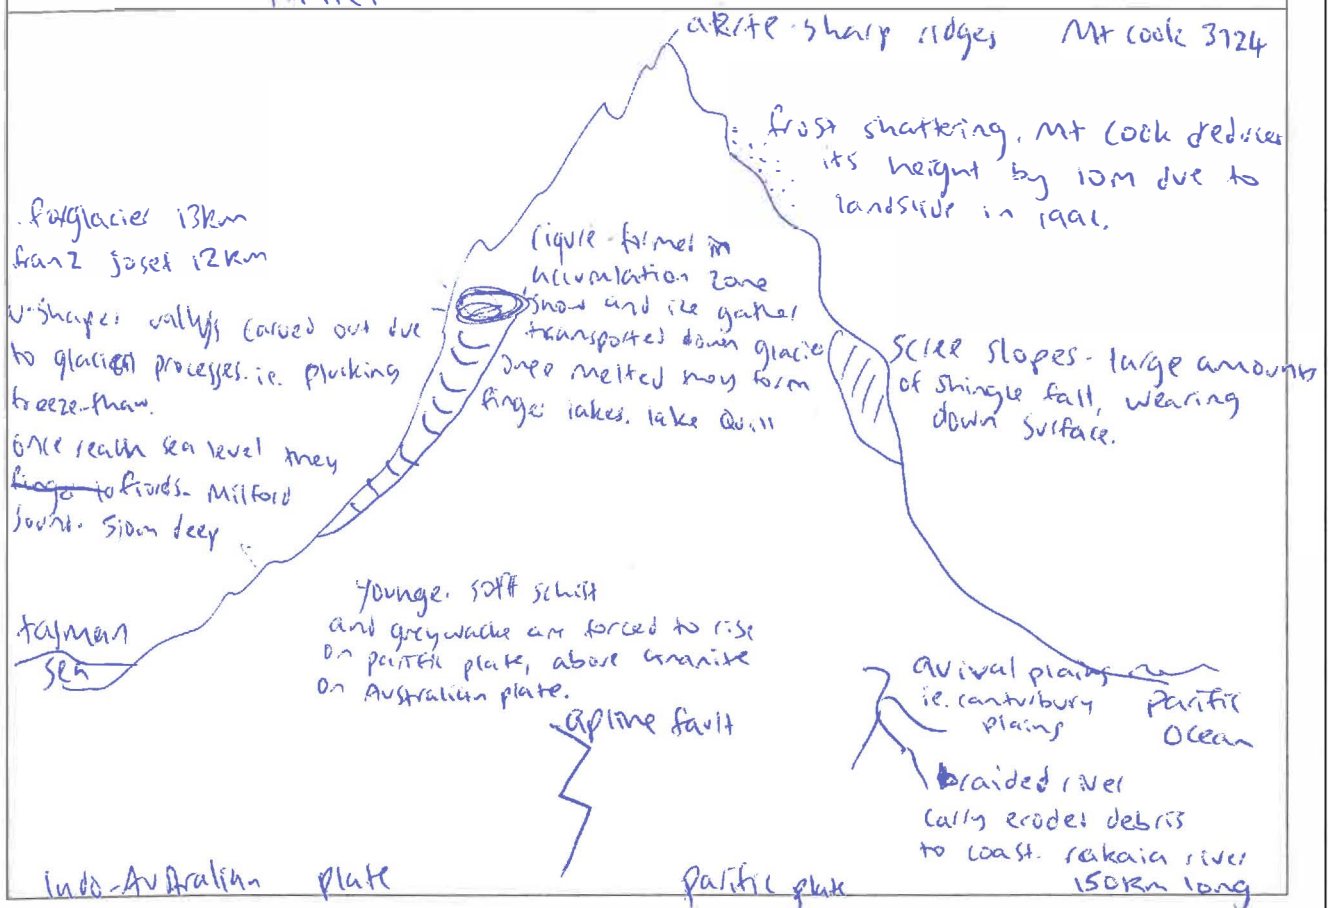 arete sharp ridges Mt Cook 3724
frost shattering. Mt Cook reduces
its height by 10m due to
landslide in 1991.
fox glacier 13km
franz josef 12km
u-shaped vallys carved out due
to glacial processes. ie. plucking
freeze-thaw.
once reach sea level they
fiords. Milford
sound. 510m deep
cirque formed in
accumulation zone
snow and ice gather
transported down glacier
once melted may form
finger lakes. lake Quill
scree slopes - large amounts
of shingle fall, wearing
down surface.
tasman
sea
younge. soft schist
and greywacke are forced to rise
on pacific plate, above granite
on Australian plate.
apline fault
avival plains
ie. canturbury
plains
pacific
ocean
braided river
carry eroded debris
to coast. rakaia river
150km long
Indo-Australian plate
pacific plate